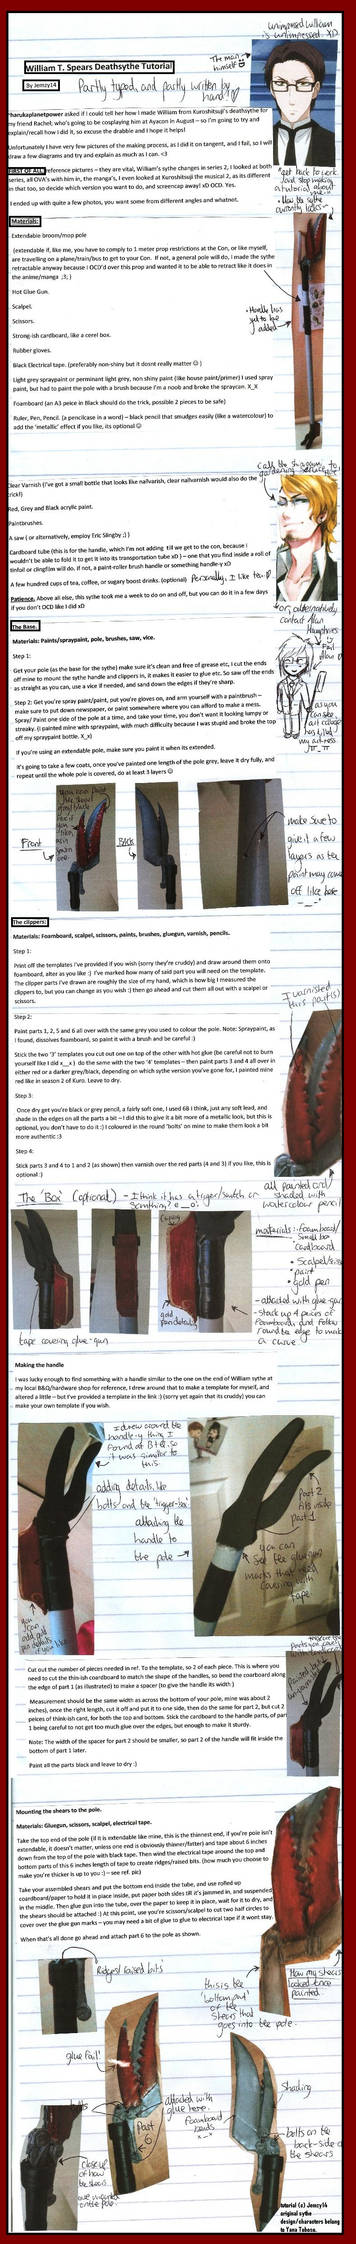 unimpressed William
is unimpressed. XD
The man
himself
William T. Spears Deathsythe Tutorial
By Jemzy14
Partly typed, and partly written by
hand!
'harukaplanetpower asked if I could tell her how I made William from Kuroshitsuji's deathsythe for
my friend Rachel; who's going to be cosplaying him at Ayacon in August – so I'm going to try and
explain/recall how I did it, so excuse the drabble and I hope it helps!
Unfortunately I have very few pictures of the making process, as I did it on tangent, and I fail, so I will
draw a few diagrams and try and explain as much as I can. <3
FIRST OF ALL reference pictures – they are vital, William's sythe changes in series 2, I looked at both
series, all OVA's with him in, the manga's, I even looked at Kuroshitsuji the musical 2, as its different
in that too, so decide which version you want to do, and screencap away! xD OCD. Yes.
I ended up with quite a few photos, you want some from different angles and whatnot.
"get back to work
and stop making
a tutorial about
me."
• How the sythe
currently looks
Materials:
Extendable broom/mop pole
(extendable if, like me, you have to comply to 1 meter prop restrictions at the Con, or like myself,
are travelling on a plane/train/bus to get to your Con. If not, a general pole will do, I made the sythe
retractable anyway because I OCD'd over this prop and wanted it to be able to retract like it does in
the anime/manga ;3; )
• Handle has
yet to be
added
Hot Glue Gun.
Scalpel.
Scissors.
Strong-ish cardboard, like a cerel box.
Rubber gloves.
Black Electrical tape. (preferably non-shiny but it dosnt really matter ☺ )
Light grey spraypaint or perminant light grey, non shiny paint (like house paint/primer) I used spray
paint, but had to paint the pole with a brush because I'm a noob and broke the spraycan. X_X
Foamboard (an A3 peice in Black should do the trick, possible 2 pieces to be safe)
Ruler, Pen, Pencil. (a pencilcase in a word) – black pencil that smudges easily (like a watercolour) to
add the 'metallic' effect if you like, its optional ☺
Clear Varnish (I've got a small bottle that looks like nailvarish, clear nailvarnish would also do the
trick!)
Red, Grey and Black acrylic paint.
Paintbrushes.
A saw ( or alternatively, employ Eric Slingby ;) )
Cardboard tube (this is for the handle, which I'm not adding till we get to the con, because I
wouldn't be able to fold it to get it into its transportation tube xD ) – one that you find inside a roll of
tinfoil or clingfilm will do. If not, a paint-roller brush handle or something handle-y xD
A few hundred cups of tea, coffee, or sugary boost drinks. (optional) Personally, I like tea.
Patience. Above all else, this sythe took me a week to do on and off, but you can do it in a few days
if you don't OCD like I did xD
call the shinigami
gardening service to,
or, alternatively
contact Alan
Humphries
Fail
Alan
as you
can see
art college
has killed
my art-ness
The Base.
Materials: Paints/spraypaint, pole, brushes, saw, vice.
Step 1:
Get your pole (as the base for the sythe) make sure it's clean and free of grease etc, I cut the ends
off mine to mount the sythe handle and clippers in, it makes it easier to glue etc. So saw off the ends
as straight as you can, use a vice if needed, and sand down the edges if they're sharp.
Step 2: Get you're spray paint/paint, put you're gloves on, and arm yourself with a paintbrush –
make sure to put down newspaper, or paint somewhere where you can afford to make a mess.
Spray/ Paint one side of the pole at a time, and take your time, you don't want it looking lumpy or
streaky. (I painted mine with spraypaint, with much difficulty because I was stupid and broke the top
off my spraypaint bottle. X_x)
If you're using an extendable pole, make sure you paint it when its extended.
It's going to take a few coats, once you've painted one length of the pole grey, leave it dry fully, and
repeat until the whole pole is covered, do at least 3 layers ☺
Front
Back
make sure to
give it a few
layers as the
paint may come
off like here
The clippers:
Materials: Foamboard, scalpel, scissors, paints, brushes, gluegun, varnish, pencils.
Step 1:
Print off the templates I've provided if you wish (sorry they're cruddy) and draw around them onto
foamboard, alter as you like :) I've marked how many of said part you will need on the template.
The clipper parts I've drawn are roughly the size of my hand, which is how big I measured the
clippers to, but you can change as you wish :) then go ahead and cut them all out with a scalpel or
scissors.
I varnished
this part(s)
Step 2:
Paint parts 1, 2, 5 and 6 all over with the same grey you used to colour the pole. Note: Spraypaint, as
I found, dissolves foamboard, so paint it with a brush and be careful :)
Stick the two '3' templates you cut out one on top of the other with hot glue (be careful not to burn
yourself like I did x__x ) do the same with the two '4' templates – then paint parts 3 and 4 all over in
either red or a darker grey/black, depending on which sythe version you've gone for, I painted mine
red like in season 2 of Kuro. Leave to dry.
Step 3:
Once dry get you're black or grey pencil, a fairly soft one, I used 6B I think, just any soft lead, and
shade in the edges on all the parts a bit – I did this to give it a bit more of a metallic look, but this is
optional, you don't have to do it :) I coloured in the round 'bolts' on mine to make them look a bit
more authentic :3
Step 4:
Stick parts 3 and 4 to 1 and 2 (as shown) then varnish over the red parts (4 and 3) if you like, this is
optional :)
all painted and/
shaded with
watercolour pencil
The 'Box' (optional) – I think it has a trigger/switch or
something? e_o;
materials:- foamboard/
small box
cardboard
• scalpel/scissors
• paint
• gold pen
gold
pen details
– attached with glue-gun
– stack up 4 pieces of
foamboard, and folder
round the edge to make
a curve
tape covering glue-gun
Making the handle
I was lucky enough to find something with a handle similar to the one on the end of William sythe at
my local B&Q/hardware shop for reference, I drew around that to make a template for myself, and
altered a little – but I've provided a template in the link :) (sorry yet again that its cruddy) you can
make your own template if you wish.
I drew around the
handle-y thing I
found at B+Q, so
it was similar to
this.
adding details like
bolts and the 'trigger-box'
attaching the
handle to
the pole
Part 2
fits inside
part 1
you can
see the gluegun
marks that need
covering with
tape.
you
can
add gold
pen details
if you like.
Cut out the number of pieces needed in ref. To the template, so 2 of each piece. This is where you
need to cut the thin-ish coardboard to match the shape of the handles, so bend the coarboard along
the edge of part 1 (as illustrated) to make a spacer (to give the handle its width )
Measurement should be the same width as across the bottom of your pole, mine was about 2
inches), once the right length, cut it off and put it to one side, then do the same for part 2, but cut 2
peices of think-ish card, for both the top and bottom. Stick the cardboard to the handle parts, of part
1 being careful to not get too much glue over the edges, but enough to make it sturdy.
Note: The width of the spacer for part 2 should be smaller, so part 2 of the handle will fit inside the
bottom of part 1 later.
Paint all the parts black and leave to dry :)
Mounting the shears to the pole.
Materials: Gluegun, scissors, scalpel, electrical tape.
Take the top end of the pole (if it is extendable like mine, this is the thinnest end, if you're pole isn't
extendable, it doesn't matter, unless one end is obviously thinner/fatter) and tape about 6 inches
down from the top of the pole with black tape. Then wind the electrical tape around the top and
bottom parts of this 6 inches length of tape to create ridges/raised bits. (how much you choose to
make you're thicker is up to you :) – see ref. pic)
Take your assembled shears and put the bottom end inside the tube, and use rolled up
coardboard/paper to hold it in place inside, put paper both sides till it's jammed in, and suspended
in the middle. Then glue gun into the tube, over the paper to keep it in place, wait for it to dry, and
the shears should be attached :) At this point, use you're scissors/scalpel to cut two half circles to
cover over the glue gun marks – you may need a bit of glue to glue to electrical tape if it wont stay.
When that's all done go ahead and attach part 6 to the pole as shown.
Ridges/raised bits'
this is the
'bottom part'
of the
shears that
goes into the pole.
How my shears
looked once
painted.
glue fail'
bolts
attached with
glue here.
Part
6
foamboard
bends
x_x
Shading
bolts on the
back-side of
the shears
close up
of how
the shears
are mounted
on the pole.
tutorial (c) Jemzy14
original sythe
design/characters belong
to Yana Toboso.